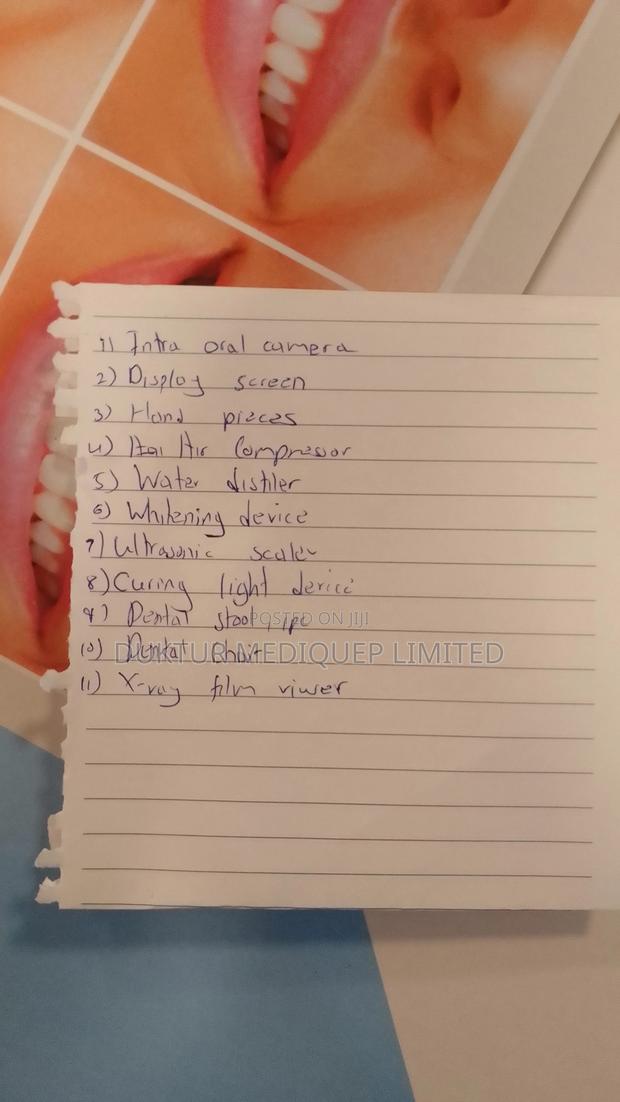 1) Intra oral camera
2) Display screen
3) Hand pieces
4) Air Compressor
5) Water distiler
6) Whitening device
7) Ultrasonic scaler
8) Curing light device
9) Dental stool, 1pc
POSTED ON JIJI
10) Dental chair
DUKTUR MEDIQUEP LIMITED
11) X-ray film viwer